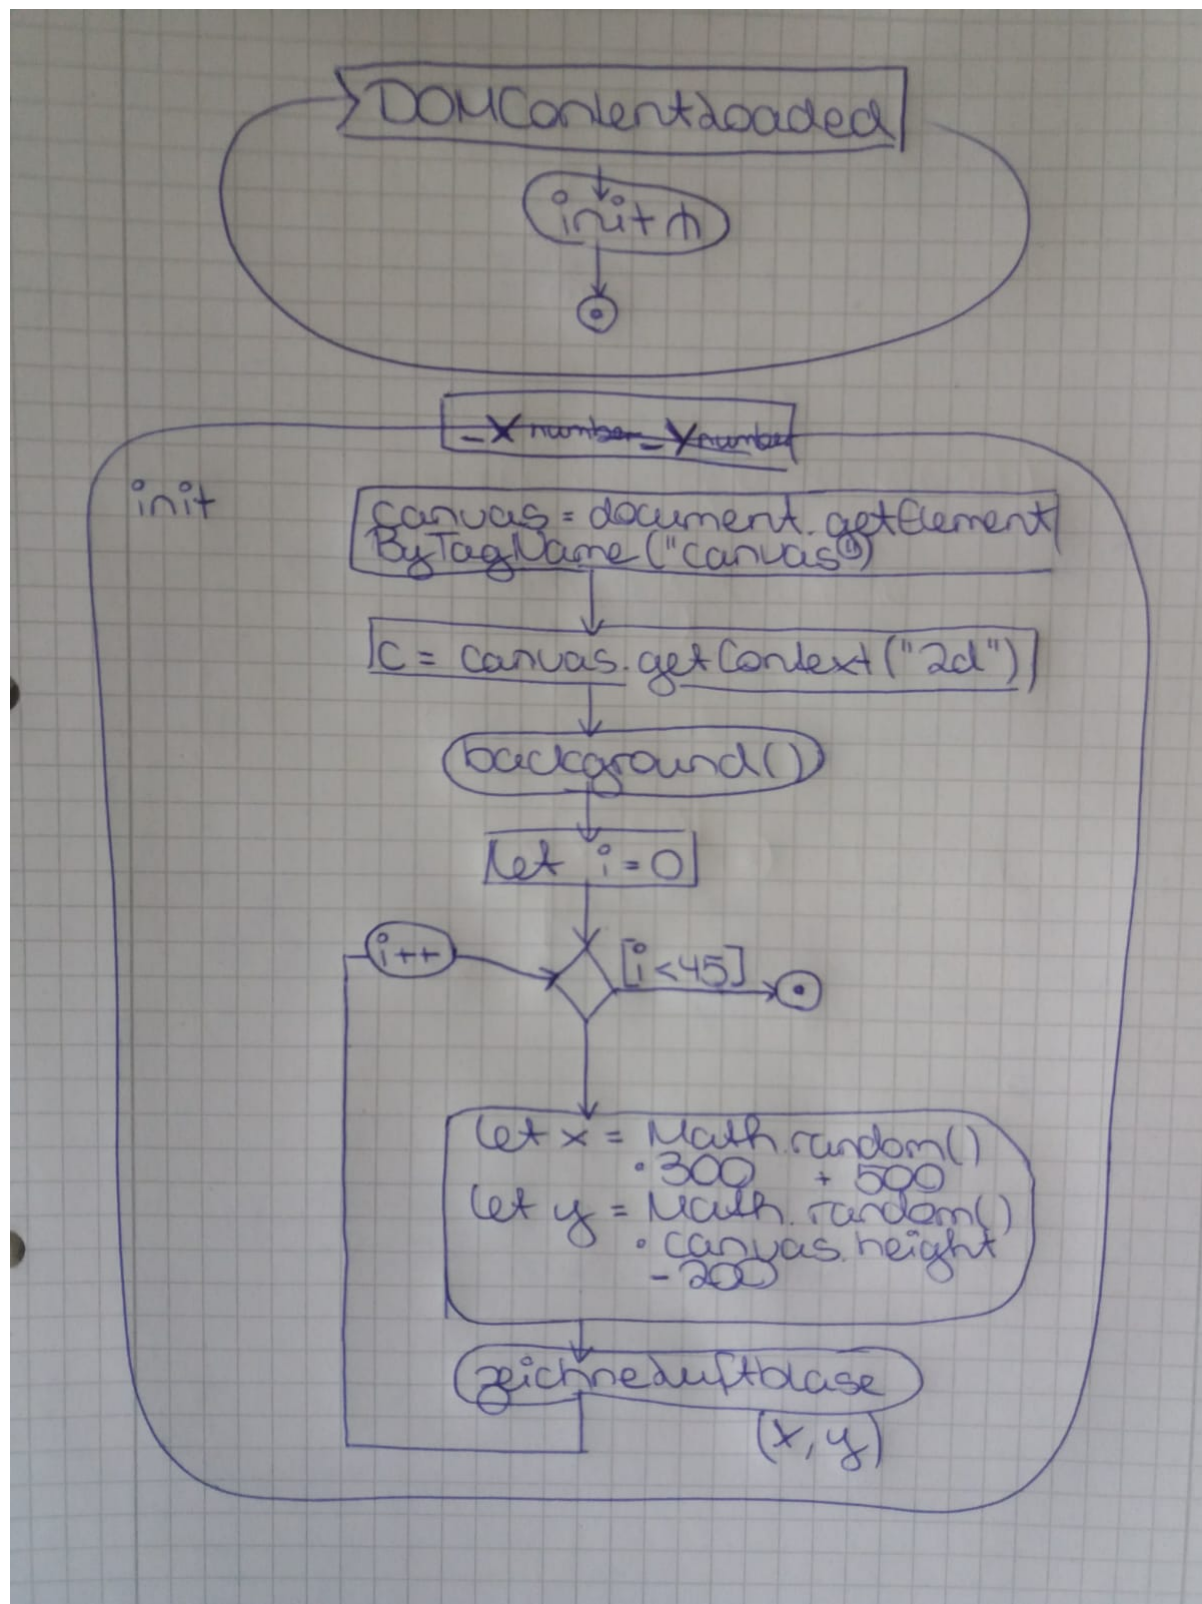 DOMContentLoaded
init
_X number _Y number
init
canvas = document.getElement
ByTagName ("canvas")
c = canvas.getContext ("2d")
background()
let i=0
i++
[i<45]
let x = Math.random()
· 300 + 500
let y = Math.random()
· canvas.height
- 200
zeichneLuftblase
(x, y)